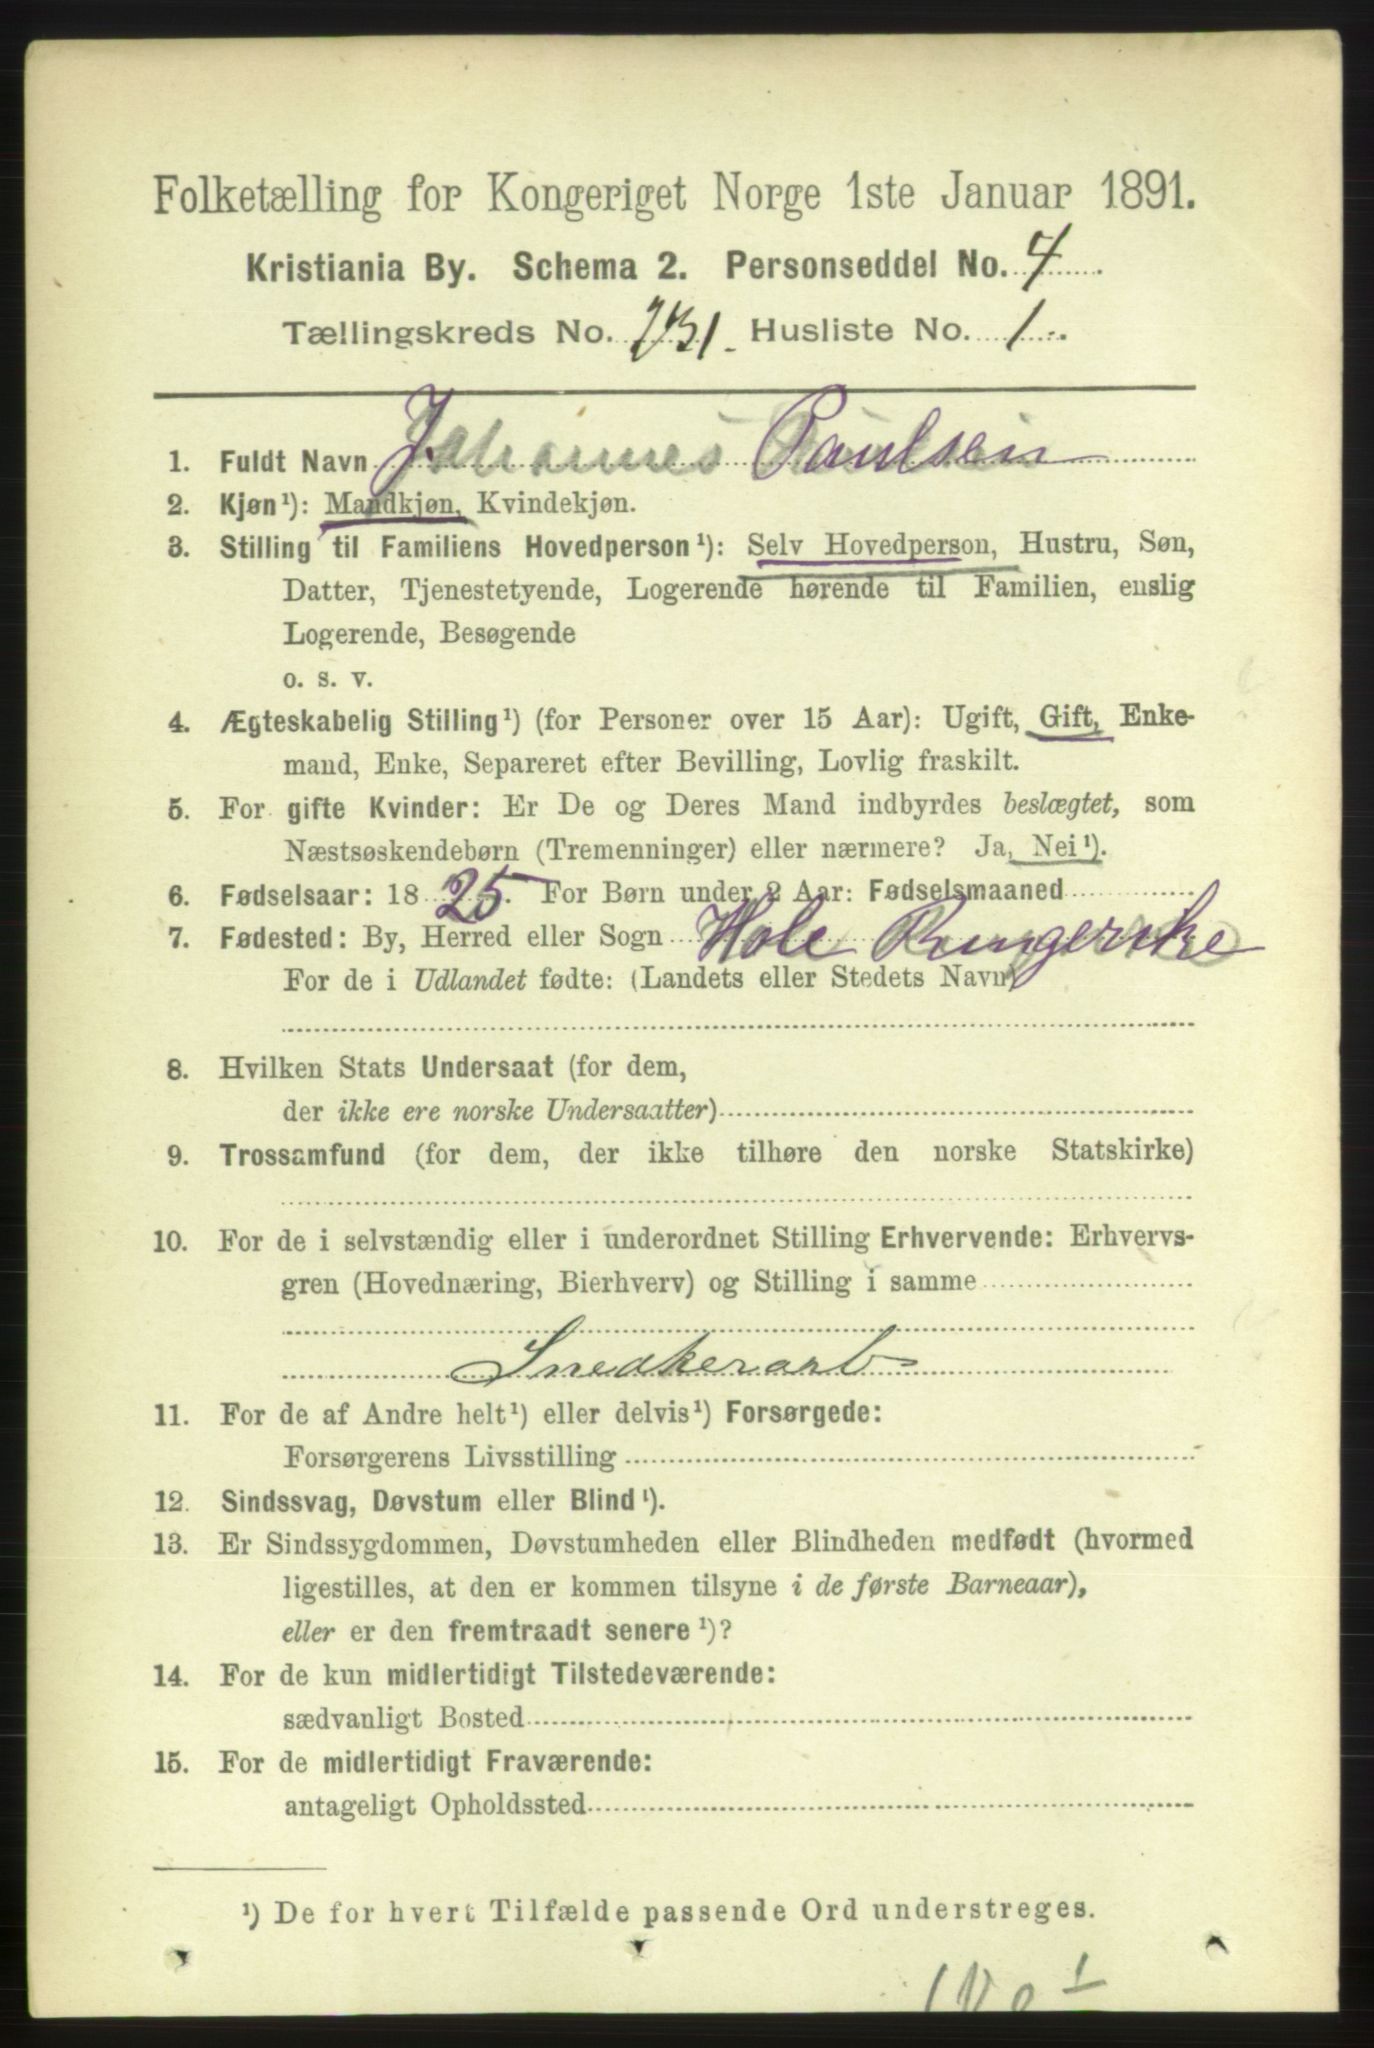 Folketælling for Kongeriget Norge 1ste Januar 1891.
Kristiania By. Schema 2. Personseddel No. 4
Tællingskreds No. 231. Husliste No. 1
1. Fuldt Navn Johannes Paulsen
2. Kjøn¹): Mandkjøn, Kvindekjøn.
3. Stilling til Familiens Hovedperson¹): Selv Hovedperson, Hustru, Søn,
Datter, Tjenestetyende, Logerende hørende til Familien, enslig
Logerende, Besøgende
o. s. v.
4. Ægteskabelig Stilling¹) (for Personer over 15 Aar): Ugift, Gift, Enke-
mand, Enke, Separeret efter Bevilling, Lovlig fraskilt.
5. For gifte Kvinder: Er De og Deres Mand indbyrdes beslægtet, som
Næstsøskendebørn (Tremenninger) eller nærmere? Ja, Nei¹).
6. Fødselsaar: 1825. For Børn under 2 Aar: Fødselsmaaned
7. Fødested: By, Herred eller Sogn Hole Ringerike
For de i Udlandet fødte: (Landets eller Stedets Navn)
8. Hvilken Stats Undersaat (for dem,
der ikke ere norske Undersaatter)
9. Trossamfund (for dem, der ikke tilhøre den norske Statskirke)
10. For de i selvstændig eller i underordnet Stilling Erhvervende: Erhvervs-
gren (Hovednæring, Bierhverv) og Stilling i samme
Snedkerarb
11. For de af Andre helt¹) eller delvis¹) Forsørgede:
Forsørgerens Livsstilling
12. Sindssvag, Døvstum eller Blind¹).
13. Er Sindssygdommen, Døvstumheden eller Blindheden medfødt (hvormed
ligestilles, at den er kommen tilsyne i de første Barneaar),
eller er den fremtraadt senere¹)?
14. For de kun midlertidigt Tilstedeværende:
sædvanligt Bosted
15. For de midlertidigt Fraværende:
antageligt Opholdssted
¹) De for hvert Tilfælde passende Ord understreges.